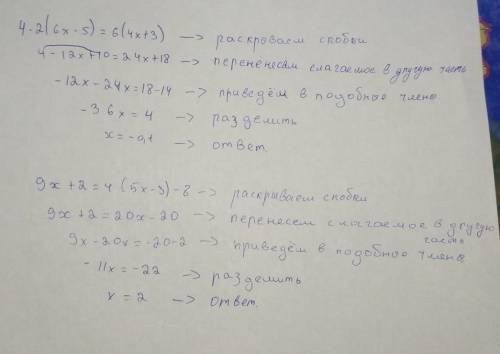 4-2(6x-5)=6(4x+3) —> раскрываем скобки
4-12x+10=24x+18 —> перенесем слагаемое в другую часть
-12x-24x=18-14 —> приведём в подобное члене
-36x=4 —> разделить
x=-0,1 —> ответ.
9x+2=4(5x-3)-8 —> раскрываем скобки
9x+2=20x-20 —> перенесем слагаемое в другую
часть
9x-20x=-20-2 —> приведём в подобное члене
-11x=-22 —> разделить
x=2 —> ответ.